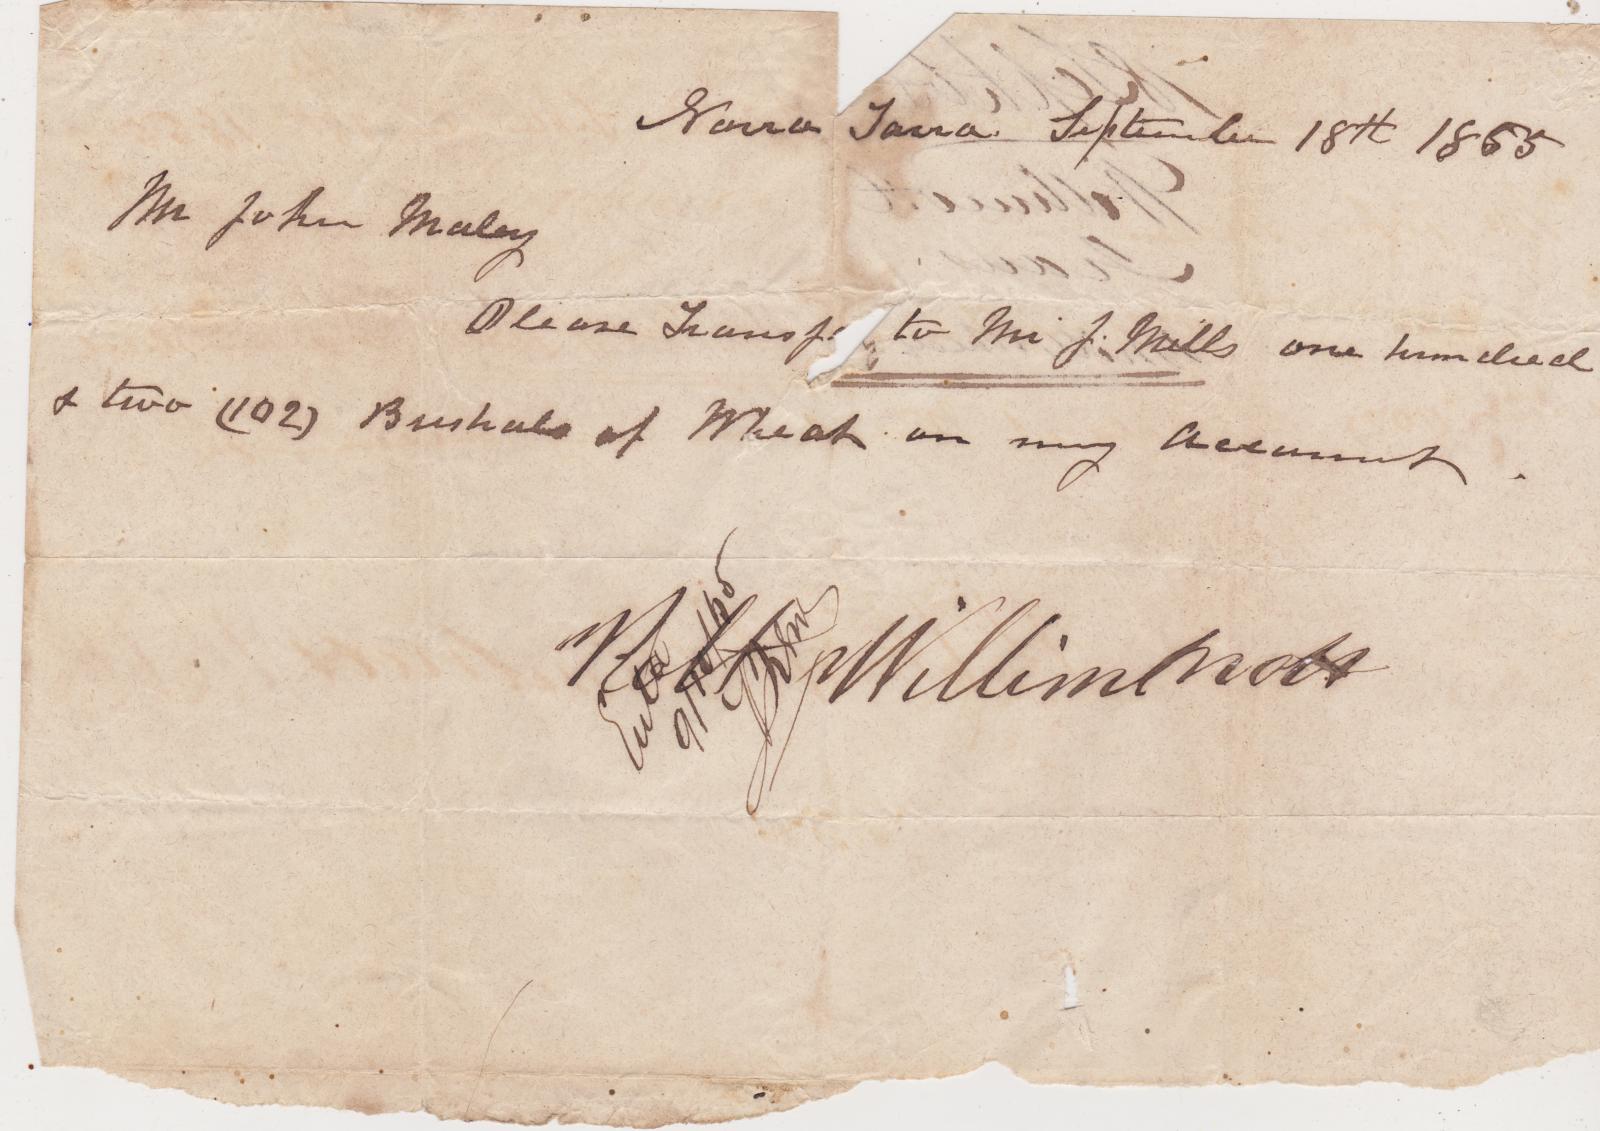 Narra Tarra September 18th 1865
Mr John Maley
Please Transf to Mr J. Mills one hundred
& two (102) Bushals of Wheat on my Account.
Willimott